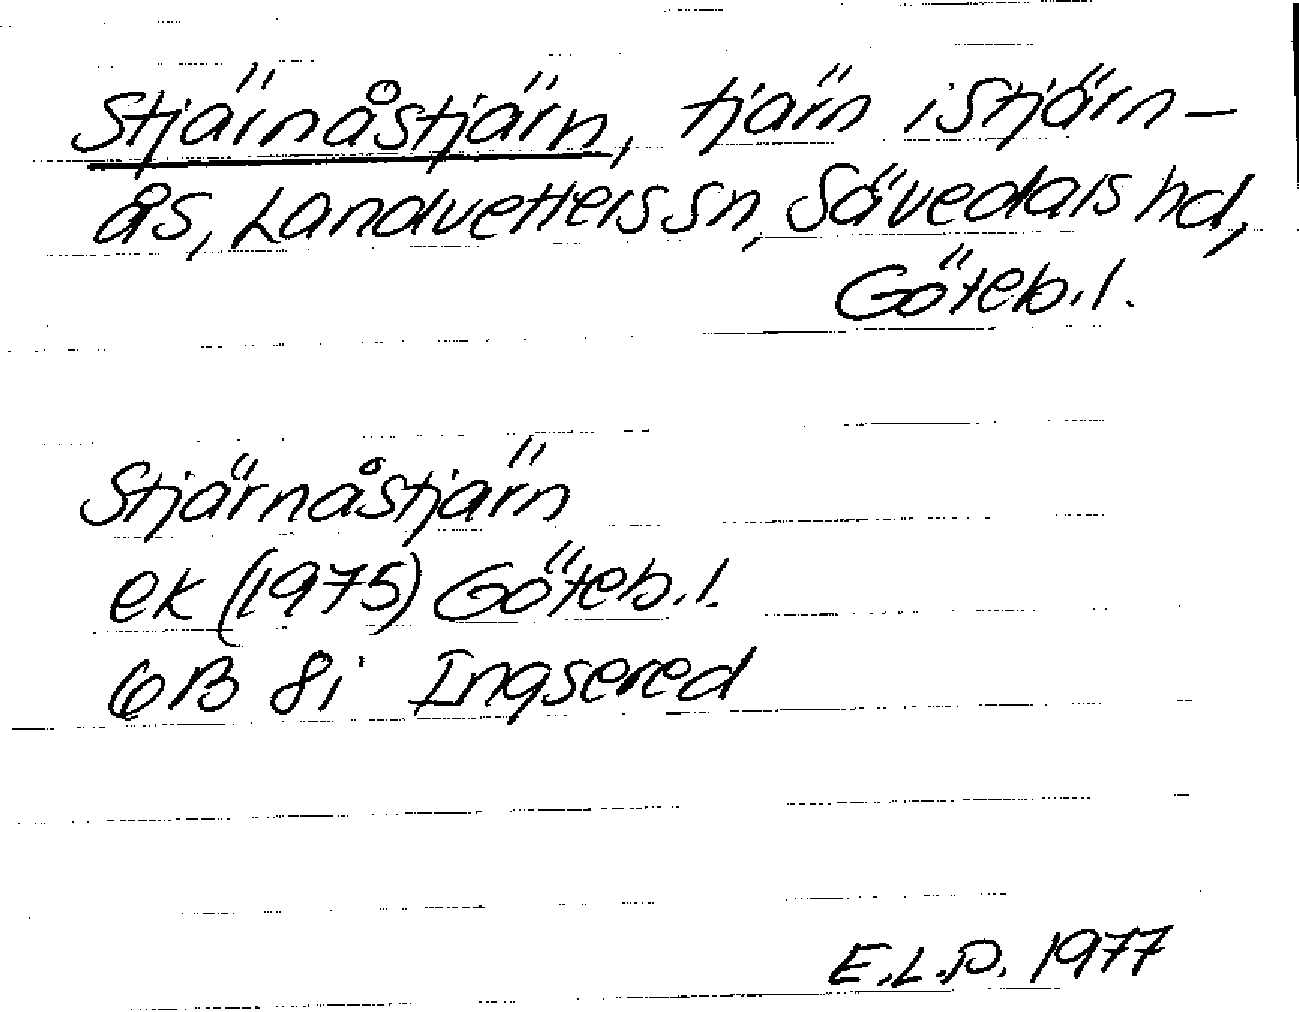 Stjärnåstjärn, tjärn i Stjärn-
ås, Landvetters sn, Sävedals hd,
Göteb. l.
Stjärnåstjärn
ek (1975) Göteb. l.
6B 8i Ingsered
E.L.P. 1977